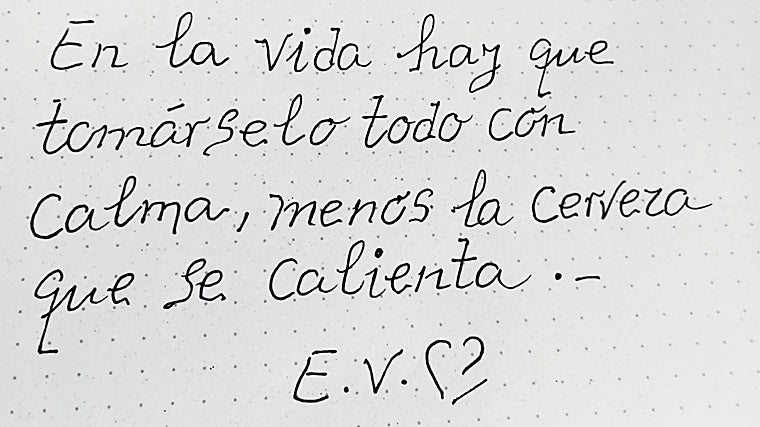 En la vida hay que
tomárselo todo con
calma, menos la cerveza
que se calienta .-
E.V.♡